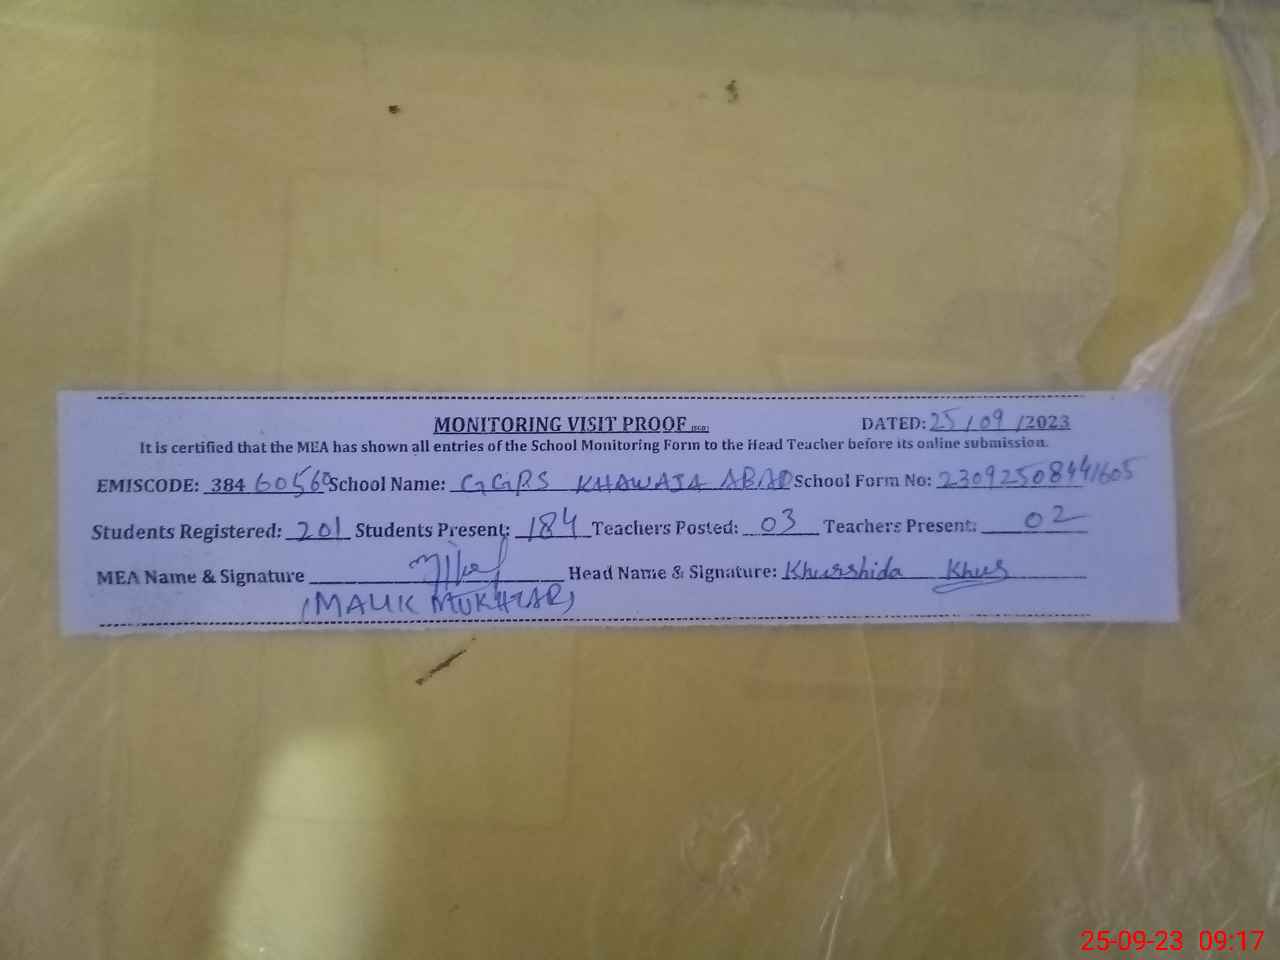 MONITORING VISIT PROOF
DATED: 25/09/2023
It is certified that the MEA has shown all entries of the School Monitoring Form to the Head Teacher before its online submission.
EMISCODE: 384 60560 School Name: GGPS KHAWAJA ABAD School Form No: 23092508441605
Students Registered: 201 Students Present: 184 Teachers Posted: 03 Teachers Present: 02
MEA Name & Signature Head Name & Signature: Khurshida Khus
(MALIK MUKHTAR)
25-09-23 09:17